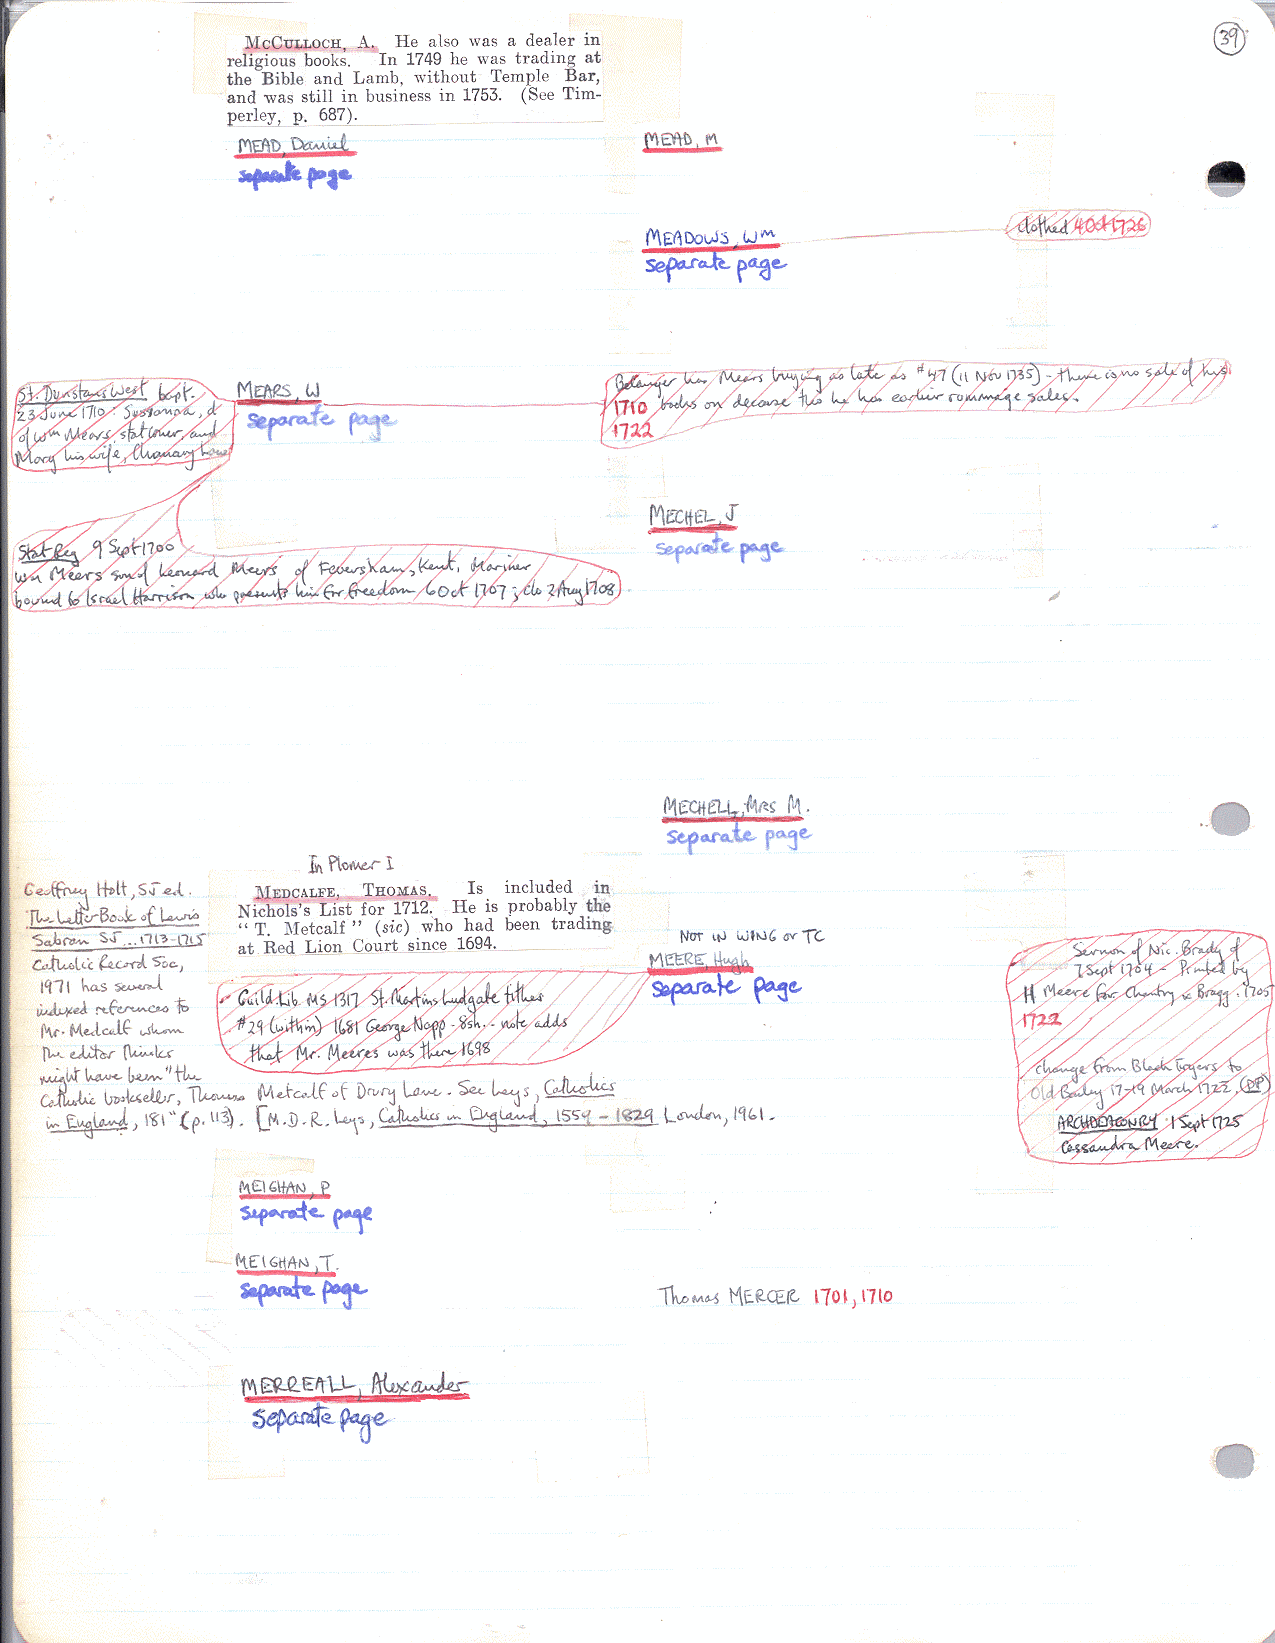 39
McCulloch, A. He also was a dealer in
religious books. In 1749 he was trading at
the Bible and Lamb, without Temple Bar,
and was still in business in 1753. (See Tim-
perley, p. 687).
MEAD, Daniel
separate page
MEAD, M
MEADOWS, Wm
separate page
clothed 4 Oct 1726
St. Dunstans West bapt.
23 June 1710. Sussanna, d
of Wm Mears, stationer, and
Mary his wife, Chancery Lane
MEARS, W
separate page
Belanger has Mears buying as late as #47 (11 Nov 1735) - there is no sale of his
1710 books on decease tho he has earlier rummage sales.
1722
MECHEL, J
separate page
Stat Reg 9 Sept 1700
Wm Meers son of Leonard Meers of Feversham, Kent, Mariner
bound to Israel Harrison who presents him for freedom 6 Oct 1707; clo 2 Aug 1708
MECHELL, Mrs M.
separate page
In Plomer I
Medcalfe, Thomas. Is included in
Nichols's List for 1712. He is probably the
"T. Metcalf" (sic) who had been trading
at Red Lion Court since 1694.
Geoffrey Holt, SJ ed.
The Letter Book of Lewis
Sabran SJ ... 1713-1715
Catholic Record Soc,
1971 has several
indexed references to
Mr. Medcalf whom
the editor thinks
might have been "the
Catholic bookseller, Thomas Metcalf of Drury Lane. See Leys, Catholics
in England, 181" (p. 113). [M.D.R. Leys, Catholics in England, 1559-1829 London, 1961.
NOT IN WING or TC
MEERE, Hugh
separate page
Guild. Lib. MS 1317 St. Martins Ludgate tithes
#29 (within) 1681 George Napp - 8sh. - note adds
that Mr. Meeres was there 1698
Sermon of Nic. Brady of
7 Sept 1704 - Printed by
H Meere for Chantry & Bragg. 1705
1722
change from Black Fryers to
Old Bailey 17-19 March 1722, (DP)
ARCHDEACONRY 1 Sept 1725
Cassandra Meere.
MEIGHAN, P
separate page
MEIGHAN, T.
separate page
Thomas MERCER 1701, 1710
MERREALL, Alexander
separate page